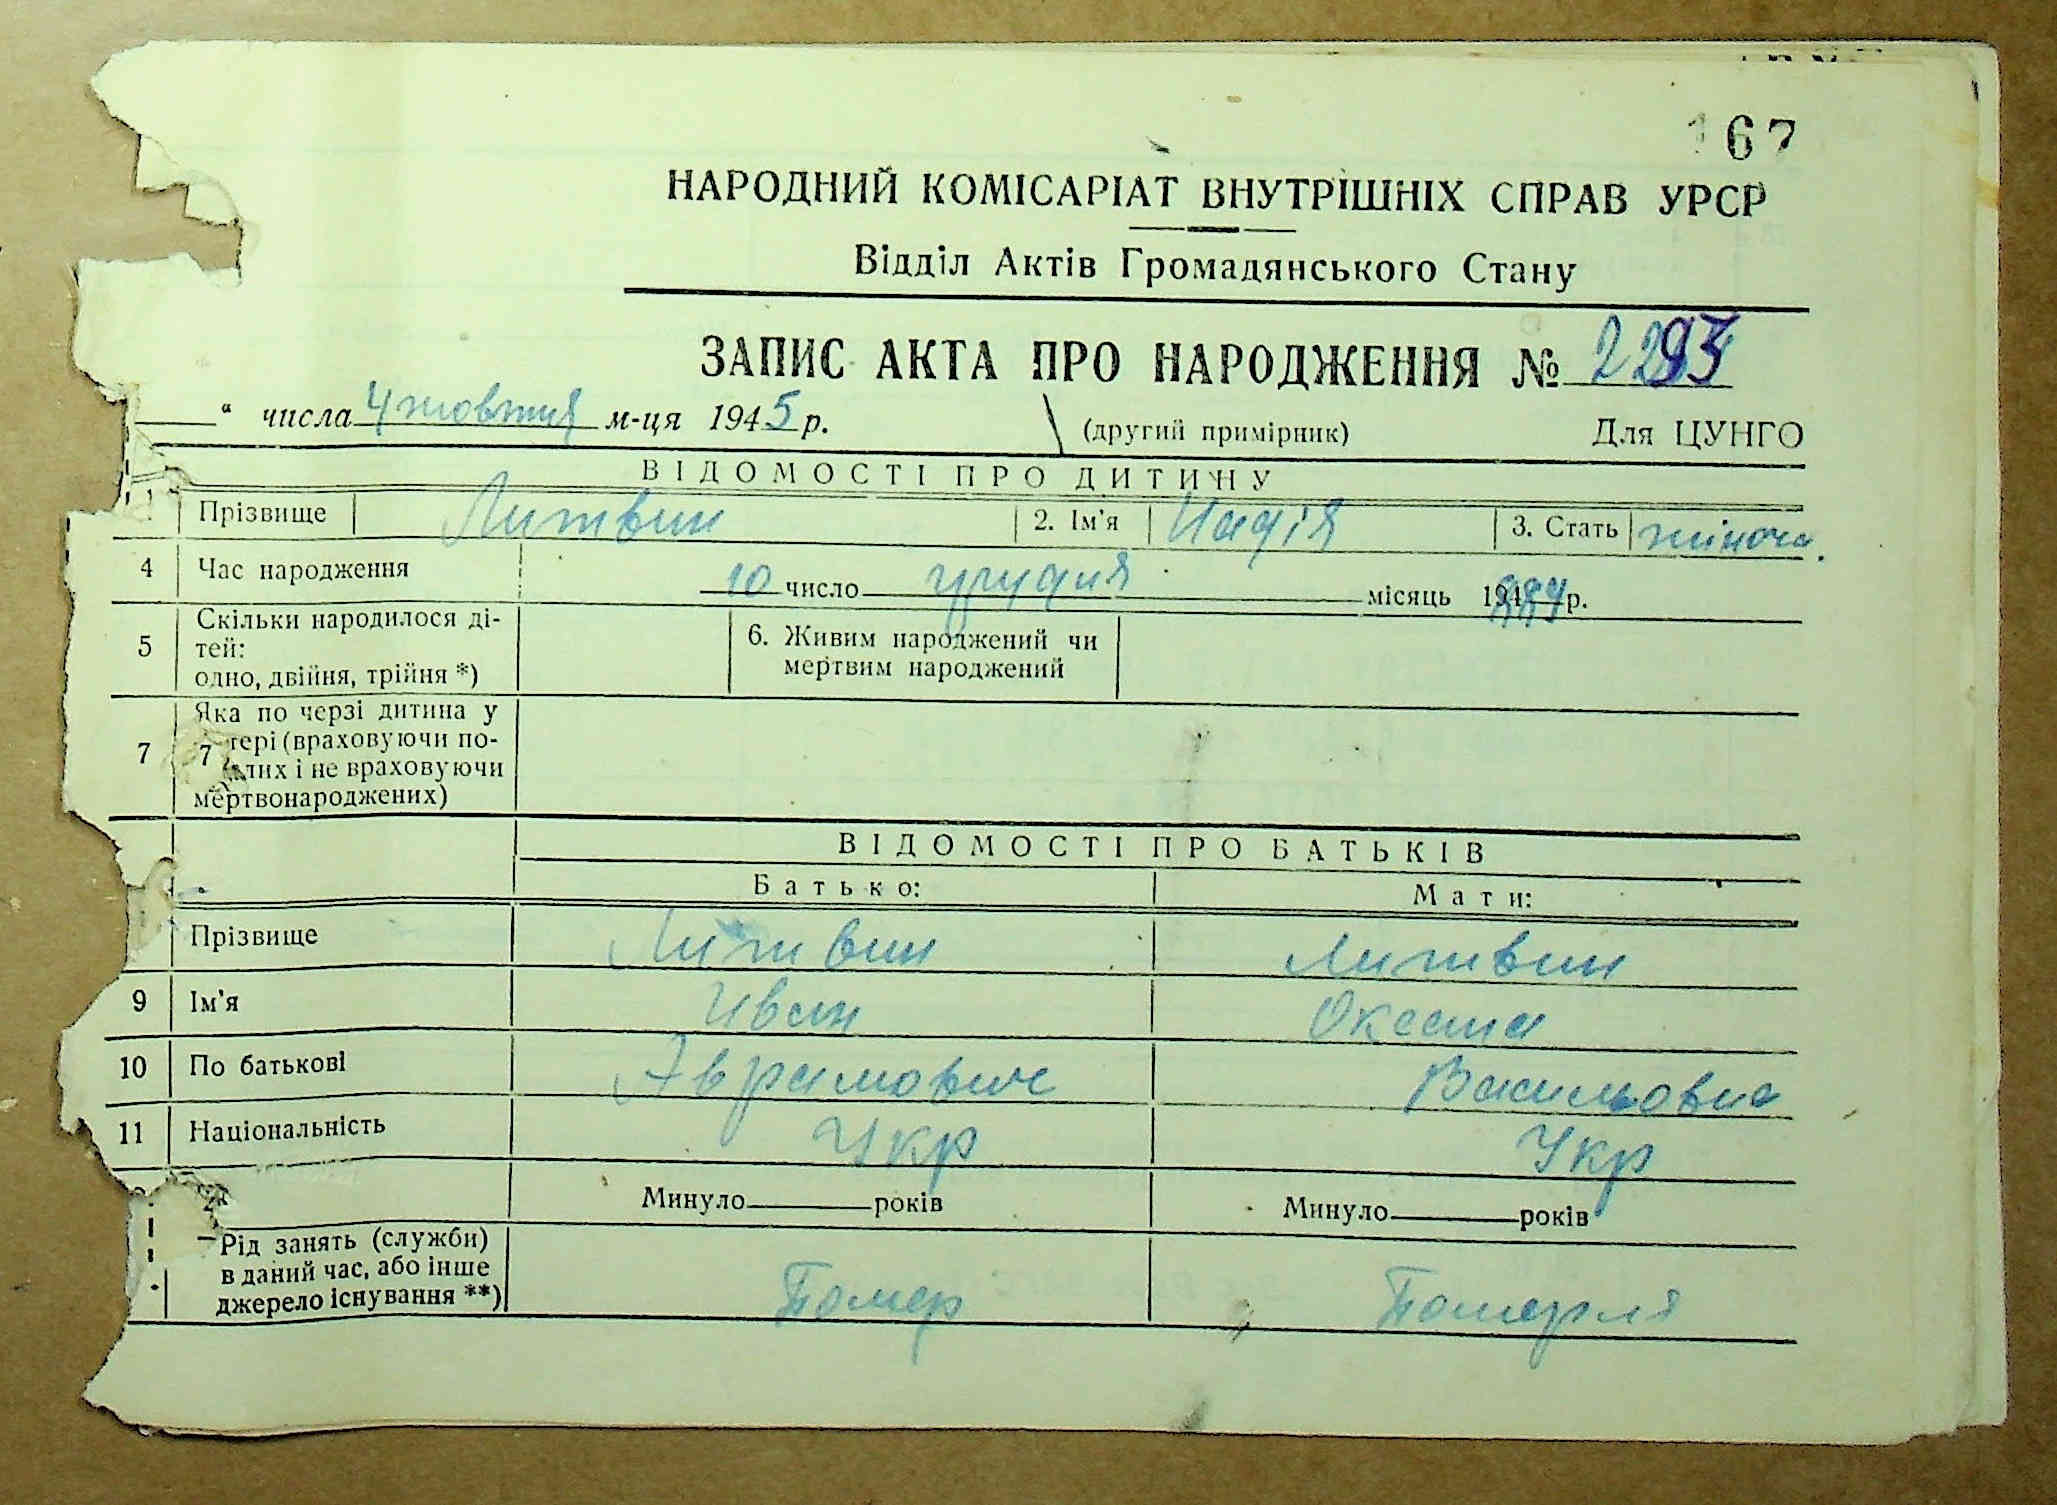 167
НАРОДНИЙ КОМІСАРІАТ ВНУТРІШНІХ СПРАВ УРСР
Відділ Актів Громадянського Стану
ЗАПИС АКТА ПРО НАРОДЖЕННЯ №
“ числа 4 жовтня м-ця 1945 р. (другий примірник) Для ЦУНГО
ВІДОМОСТІ ПРО ДИТИНУ
1 Прізвище Литвин 2. Ім'я Надія 3. Стать жіноча.
4 Час народження 10 число грудня місяць р.
5 Скільки народилося ді-
тей:
одно, двійня, трійня *)
6. Живим народжений чи
мертвим народжений
7 Яка по черзі дитина у
7 тері (враховуючи по-
лих і не враховуючи
мертвонароджених)
ВІДОМОСТІ ПРО БАТЬКІВ
Батько: Мати:
Прізвище Литвин Литвин
9 Ім'я Иван Оксана
10 По батькові Аврамович Васильовна
11 Національність Укр Укр
Минуло років Минуло років
Рід занять (служби)
в даний час, або інше
джерело існування **)
Помер Померла